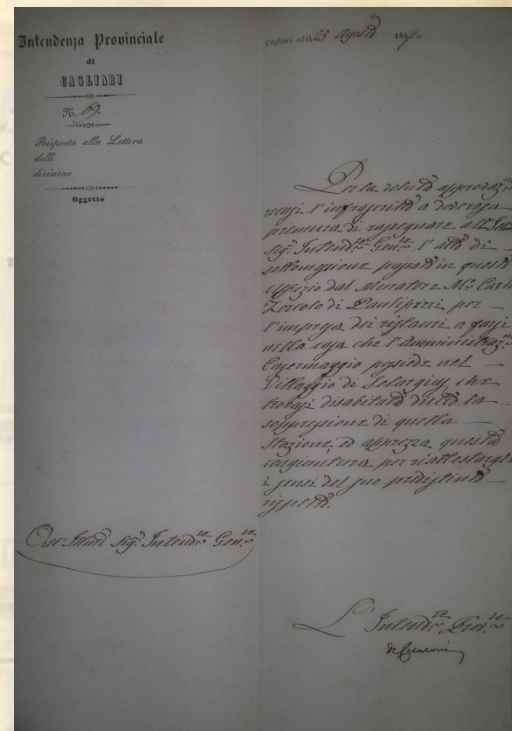 Intendenza Provinciale
di
CAGLIARI
N. 69.
Risposta alla Lettera
delli
divisione
Oggetto
Cagliari addì 25 Agosto 184
Per la voluta approvaz.ne
recasi l'infrascritto a doverosa
premura di rassegnare all' Ill.mo
Sig. Intend.te Gen.le l'atto di
sottomissione passato in questo
Uffizio dal Muratore M.o Carlo
di Paulipirri per
l'impresa dei ristauri a farsi
nella casa che l'Amministraz.ne
Casermaggio possiede nel
Villaggio di Selargius, che
trovasi disabitata dietro la
soppressione di quella
Stazione, ed apprezza questa
congiuntura per riattestargli
i sensi del suo predistinto
rispetto.
All' Ill.mo Sig. Intend.te Gen.le
L'Intend.te Prov.le